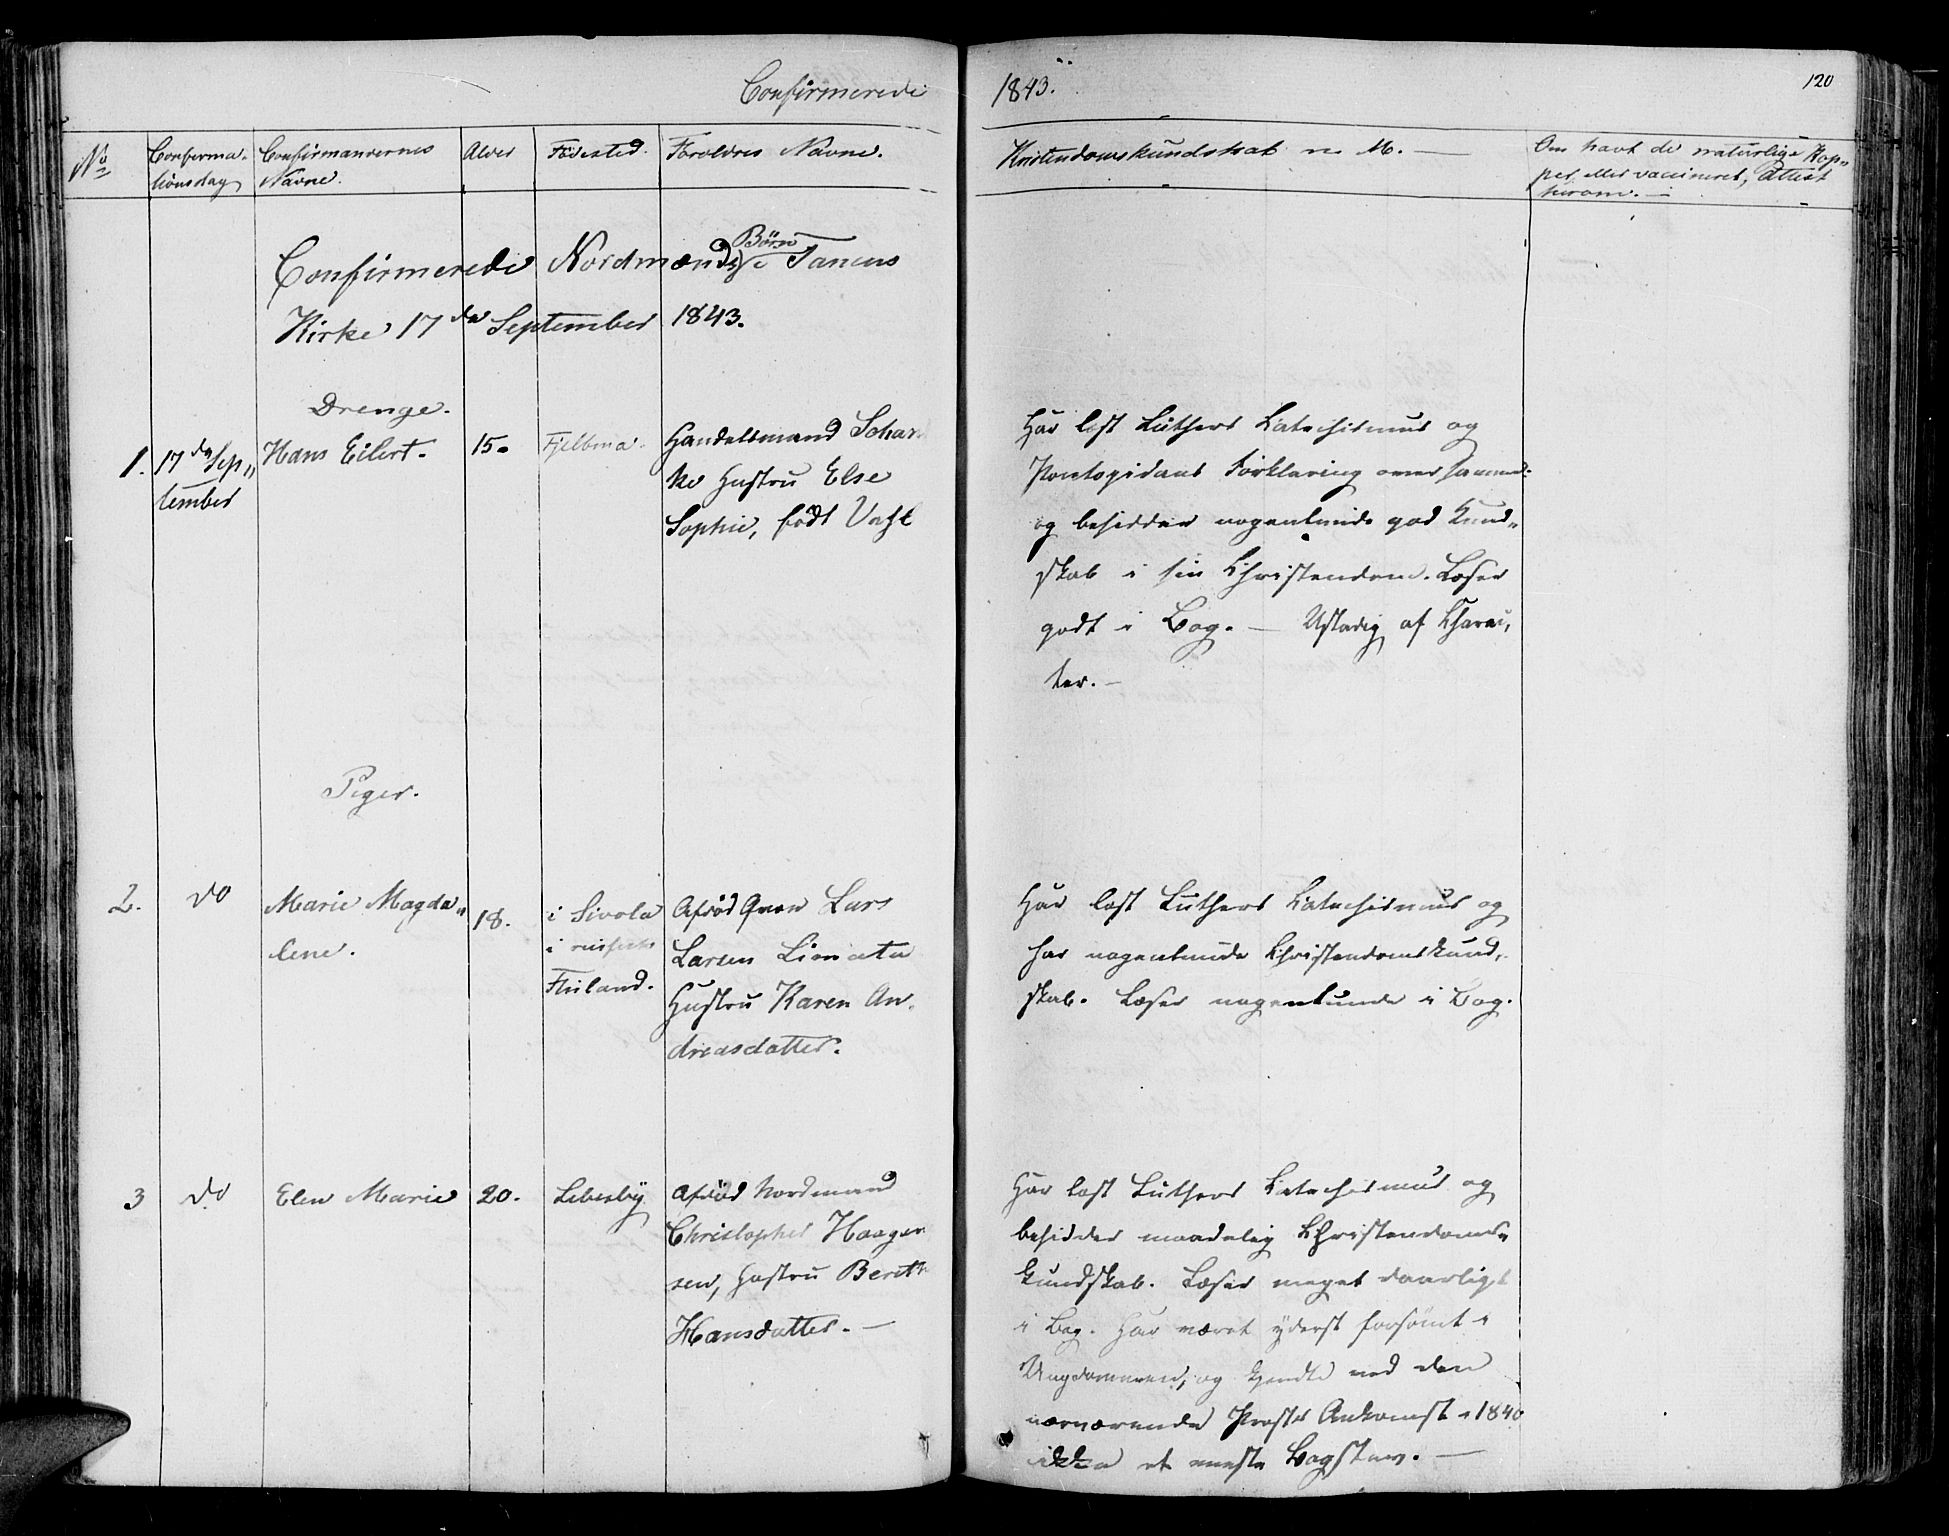 Confirmerede
1843.
120
No
Confirma-
tionsdag
Confirmandernes
Navne.
Alder
Födested.
Foræld​res Navne.
Kristendomskundskab m. M. —
Om havt de naturlige Kop„
per, eller vaccineret, Attest
herom. —
Confirmerede Nordmænds Börn i Tanens
Kirke 17de September 1843.
Drenge.
1.
17de Sep„
tember
Hans Eilert.
15.
Fjelbma.
Handelsmand Schan
ke Hustru Else
Sophie, født
Har læst Luthers Catechismus og
Pontopidans Forklaring over samme
og besidder nogenlunde god Kund„
skab i sin Christendom. Læser
godt i Bog. — Ustadig af Charac,
ter. —
Piger.
2.
do
Marie Magda„
lene.
18.
i Sivola
i russisk
Finland.
Afdød Qvæn Lars
Larsen Limata
Hustru Karen An„
dreasdatter.
Har læst Luthers Catechismus og
har nogenlunde Christendomskund„
skab. Læser nogenlunde i Bog.
3
do
Elen Marie
20.
Lebesby
Afdød Nordmand
Christopher Haagen
sen, Hustru Berith
Hansdatter. —
Har læst Luthers Catechismus og
besidder maadelig Christendoms„
kundskab. Læser meget daarligt
i Bog. Har været yderst forsömt i
Ungdommen, og kjendte ved den
nærværende Præsts Ankomst i 1840
ikke et eneste Bogstav. —